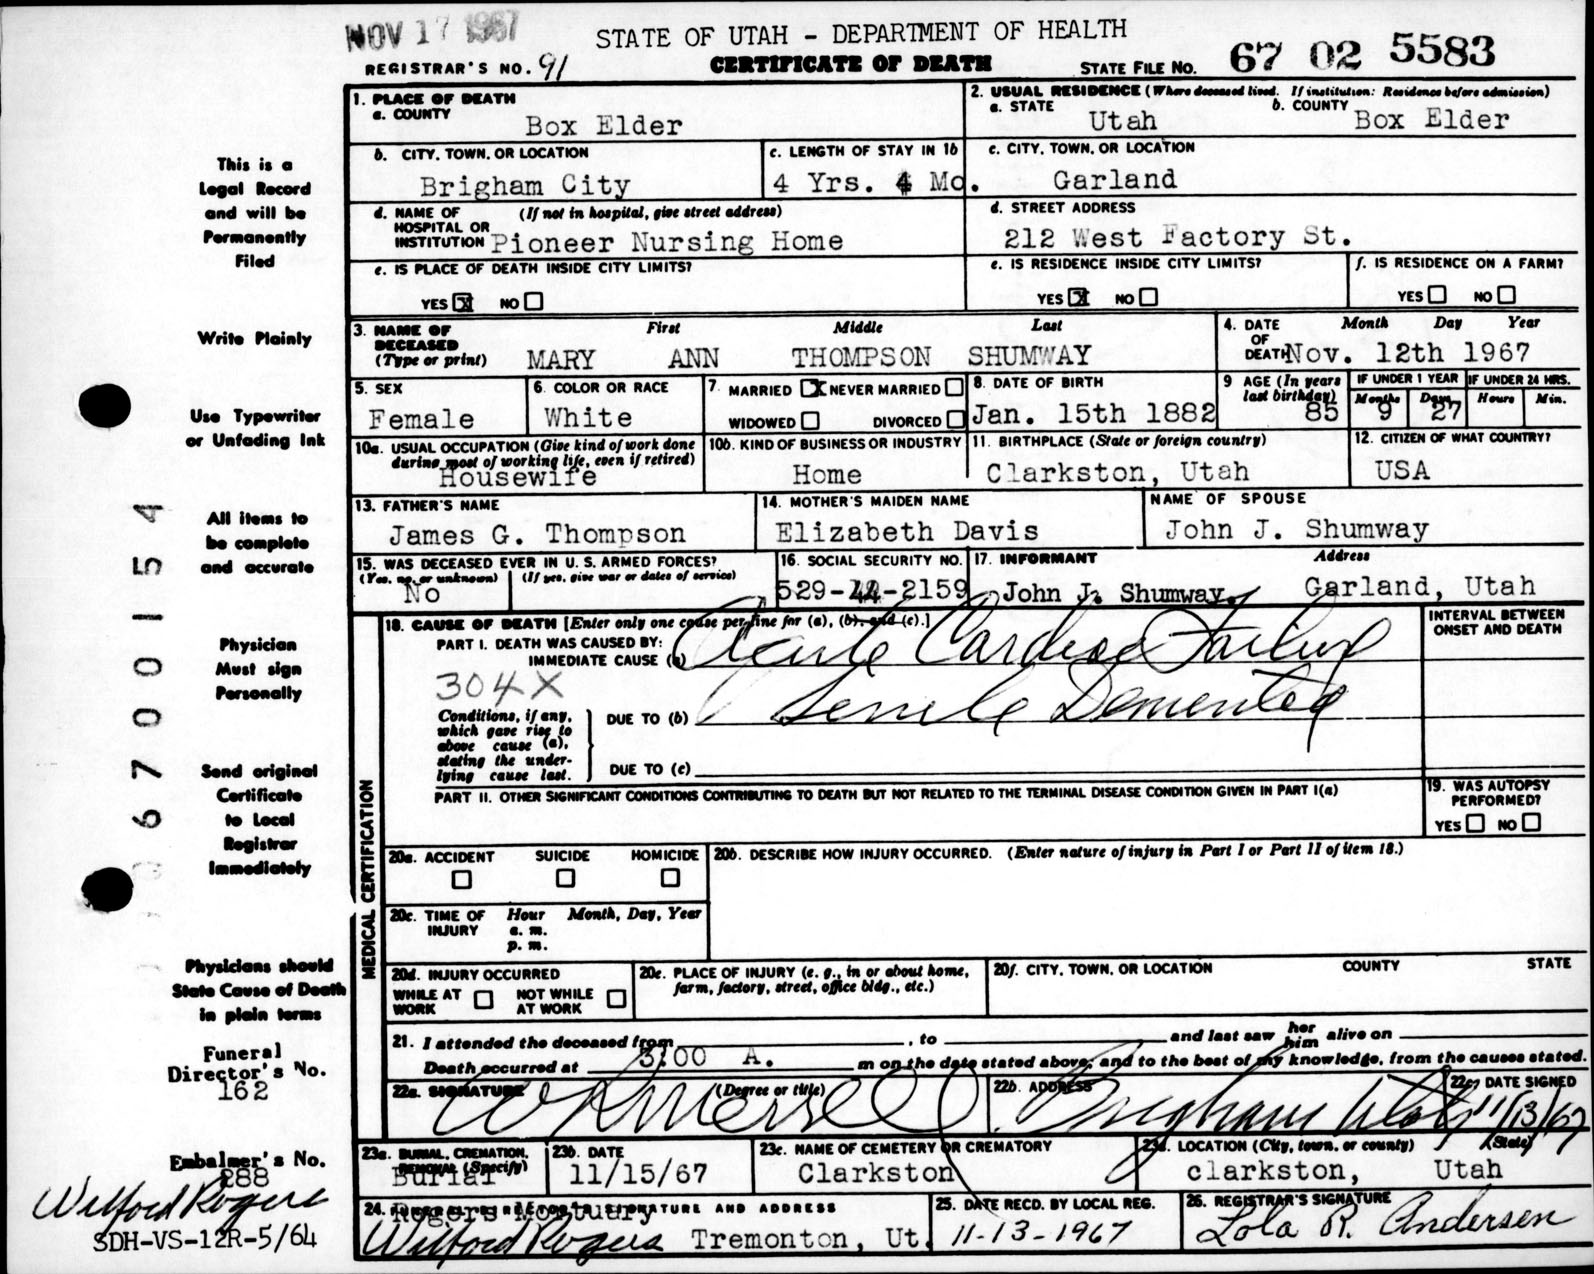 NOV 17 1967
STATE OF UTAH - DEPARTMENT OF HEALTH
REGISTRAR'S NO. 91
CERTIFICATE OF DEATH
STATE FILE NO. 67 02 5583
1. PLACE OF DEATH
a. COUNTY
Box Elder
2. USUAL RESIDENCE (Where deceased lived. If institution: Residence before admission)
a. STATE
Utah
b. COUNTY
Box Elder
b. CITY, TOWN, OR LOCATION
Brigham City
c. LENGTH OF STAY IN 1b
4 Yrs. 4 Mo.
c. CITY, TOWN, OR LOCATION
Garland
d. NAME OF HOSPITAL OR INSTITUTION (If not in hospital, give street address)
Pioneer Nursing Home
d. STREET ADDRESS
212 West Factory St.
e. IS PLACE OF DEATH INSIDE CITY LIMITS?
YES X NO
e. IS RESIDENCE INSIDE CITY LIMITS?
YES X NO
f. IS RESIDENCE ON A FARM?
YES NO
3. NAME OF DECEASED (Type or print)
First Middle Last
MARY ANN THOMPSON SHUMWAY
4. DATE OF DEATH
Month Day Year
Nov. 12th 1967
5. SEX
Female
6. COLOR OR RACE
White
7. MARRIED X NEVER MARRIED
WIDOWED DIVORCED
8. DATE OF BIRTH
Jan. 15th 1882
9 AGE (In years last birthday)
85
IF UNDER 1 YEAR
Months Days
9 27
IF UNDER 24 HRS.
Hours Min.
10a. USUAL OCCUPATION (Give kind of work done during most of working life, even if retired)
Housewife
10b. KIND OF BUSINESS OR INDUSTRY
Home
11. BIRTHPLACE (State or foreign country)
Clarkston, Utah
12. CITIZEN OF WHAT COUNTRY?
USA
13. FATHER'S NAME
James G. Thompson
14. MOTHER'S MAIDEN NAME
Elizabeth Davis
NAME OF SPOUSE
John J. Shumway
15. WAS DECEASED EVER IN U. S. ARMED FORCES?
(Yes, no, or unknown) (If yes, give war or dates of service)
No
16. SOCIAL SECURITY NO.
529-44-2159
17. INFORMANT Address
John J. Shumway, Garland, Utah
18. CAUSE OF DEATH [Enter only one cause per line for (a), (b), and (c).]
PART I. DEATH WAS CAUSED BY:
IMMEDIATE CAUSE (a) Acute Cardiac Failure
304X
Conditions, if any, which gave rise to above cause (a), stating the underlying cause last.
DUE TO (b) Senile Dementia
DUE TO (c)
INTERVAL BETWEEN ONSET AND DEATH
PART II. OTHER SIGNIFICANT CONDITIONS CONTRIBUTING TO DEATH BUT NOT RELATED TO THE TERMINAL DISEASE CONDITION GIVEN IN PART I(a)
19. WAS AUTOPSY PERFORMED?
YES NO
MEDICAL CERTIFICATION
20a. ACCIDENT SUICIDE HOMICIDE
20b. DESCRIBE HOW INJURY OCCURRED. (Enter nature of injury in Part I or Part II of item 18.)
20c. TIME OF INJURY
Hour Month, Day, Year
a. m.
p. m.
20d. INJURY OCCURRED
WHILE AT WORK NOT WHILE AT WORK
20e. PLACE OF INJURY (e. g., in or about home, farm, factory, street, office bldg., etc.)
20f. CITY, TOWN, OR LOCATION COUNTY STATE
21. I attended the deceased from , to and last saw her him alive on
Death occurred at 3:00 A. m on the date stated above; and to the best of my knowledge, from the causes stated.
22a. SIGNATURE (Degree or title)
22b. ADDRESS
Brigham Utah
22c. DATE SIGNED
11/13/67
23a. BURIAL, CREMATION, REMOVAL (Specify)
Burial
23b. DATE
11/15/67
23c. NAME OF CEMETERY OR CREMATORY
Clarkston
23d. LOCATION (City, town, or county) (State)
clarkston, Utah
24. FUNERAL DIRECTOR'S SIGNATURE AND ADDRESS
Rogers Mortuary
Wilford Rogers Tremonton, Ut.
25. DATE RECD. BY LOCAL REG.
11-13-1967
26. REGISTRAR'S SIGNATURE
Lola R. Andersen
This is a
Legal Record
and will be
Permanently
Filed
Write Plainly
Use Typewriter
or Unfading Ink
All items to
be complete
and accurate
Physician
Must sign
Personally
Send original
Certificate
to Local
Registrar
Immediately
Physicians should
State Cause of Death
in plain terms
Funeral
Director's No.
162
Embalmer's No.
288
Wilford Rogers
SDH-VS-12R-5/64